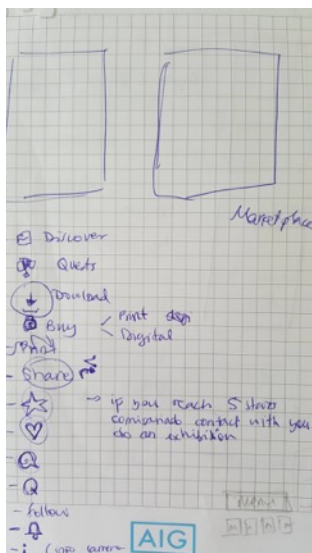 Marketplace
Discover
Quests
Download
Buy
Print
Digital
- Print
- Share
→ if you reach 5 stars
contact with you
do an exhibition
- follow
AIG